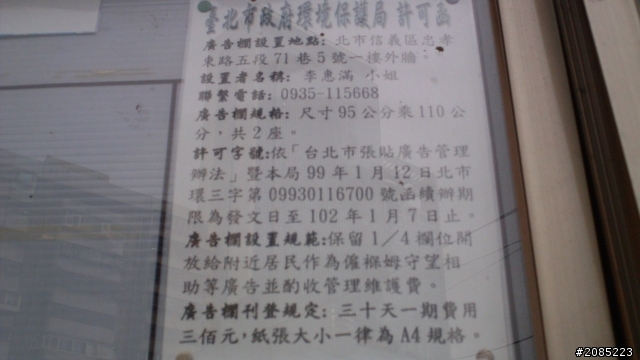 臺北市政府環境保護局 許可函
廣告欄設置地點: 北市信義區忠孝
東路五段 71 巷 5 號一樓外牆
設置者名稱: 李惠滿 小姐
聯繫電話: 0935-115668
廣告欄規格: 尺寸 95 公分乘 110 公
分, 共 2 座。
許可字號:依「台北市張貼廣告管理
辦法」暨本局 99 年 1 月 12 日北市
環三字第 09930116700 號函續辦期
限為發文日至 102 年 1 月 7 日止。
廣告欄設置規範:保留 1/4 欄位開
放給附近居民作為僱褓姆守望相
助等廣告並酌收管理維護費。
廣告欄刊登規定: 三十天一期費用
三佰元,紙張大小一律為 A4 規格。
#2085223